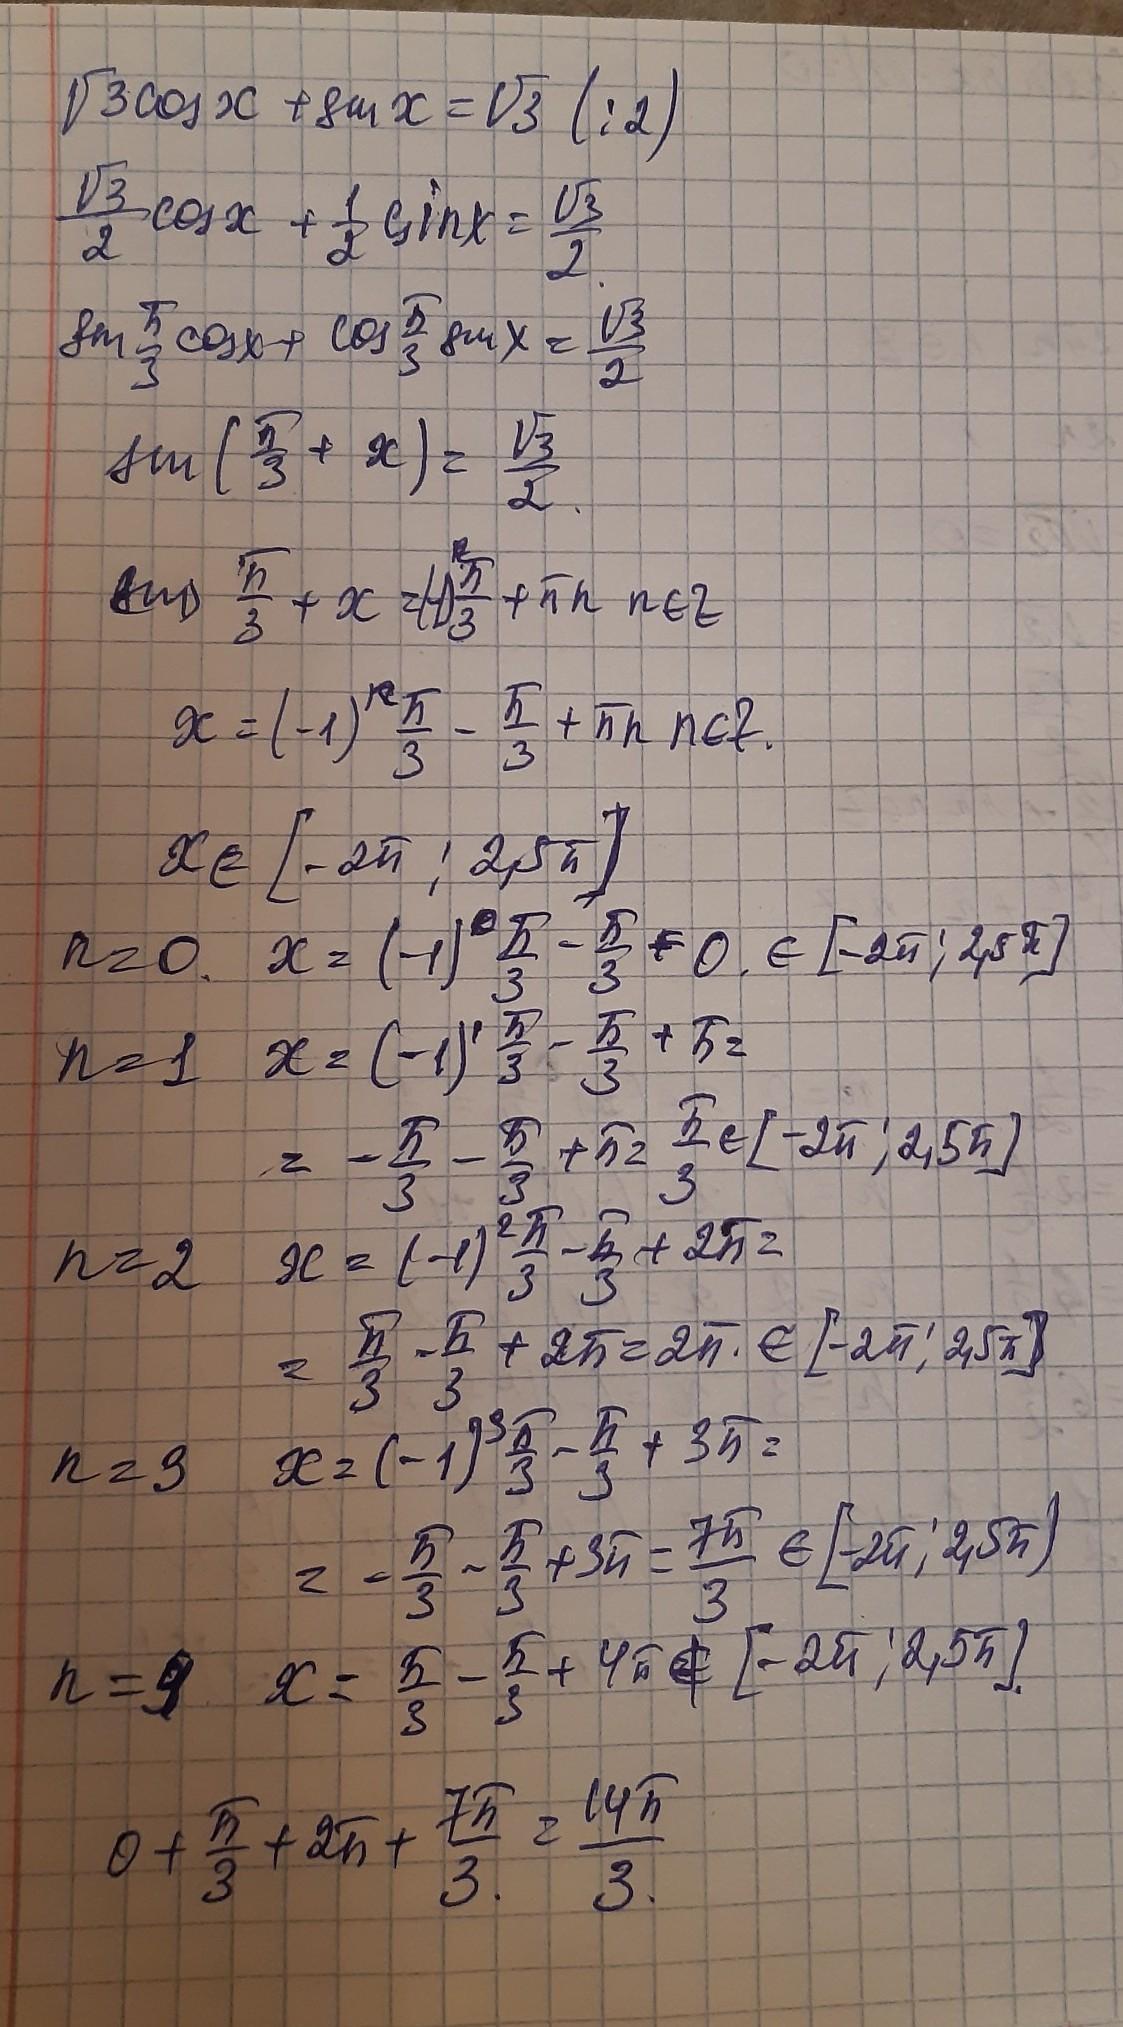 √3 cos x + sin x = √3 (:2)
√3/2 cos x + 1/2 sin x = √3/2.
sin π/3 cos x + cos π/3 sin x = √3/2
sin (π/3 + x) = √3/2.
π/3 + x = (-1)ⁿ π/3 + πn n∈Z
x = (-1)ⁿ π/3 - π/3 + πn n∈Z.
x ∈ [-2π; 2,5π]
n=0. x = (-1)⁰ π/3 - π/3 = 0. ∈ [-2π; 2,5π]
n=1 x = (-1)¹ π/3 - π/3 + π =
= -π/3 - π/3 + π = π/3 ∈ [-2π; 2,5π]
n=2 x = (-1)² π/3 - π/3 + 2π =
= π/3 - π/3 + 2π = 2π. ∈ [-2π; 2,5π]
n=3 x = (-1)³ π/3 - π/3 + 3π =
= -π/3 - π/3 + 3π = 7π/3 ∈ [-2π; 2,5π)
n= x = π/3 - π/3 + 4π ∉ [-2π; 2,5π].
0 + π/3 + 2π + 7π/3. = 14π/3.